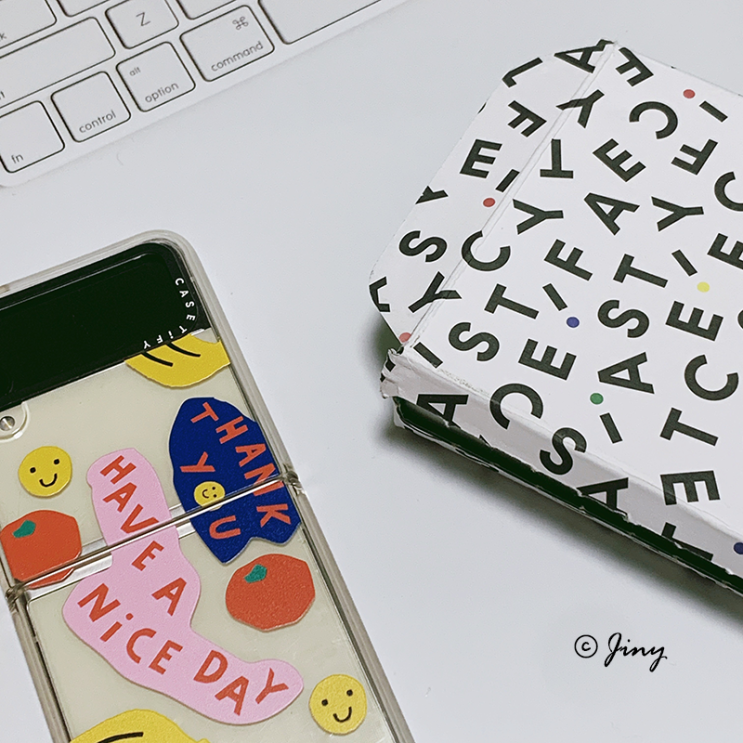 Z
⌘
command
alt
option
control
fn
CASETiFY
THANK
YOU
HAVE A
NiCE DAY
CASETiFY
© Jiny